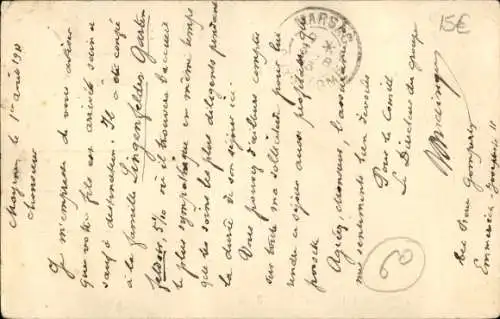 Mayence, le 1er avril 191
Monsieur
J'm'empresse de vous aviser
que votre fils est arrivé sain &
sauf à destination. Il a été confié
à la famille Lingenfelder, Garten
feldstr, 5/10 où il trouvera l'accueil
le plus sympathique en même temps
que les soins les plus diligents pendant
la durée de son séjour ici.
Vous pouvez d'ailleurs compter
sur toute ma sollicitude pour lui
rendre ce séjour aussi profitable que
possible.
Agréez, Monsieur, l'assurance de
mes sentiments bien dévoués
Pour le Comité
Le Directeur du groupe
Emmerich Josephstr 11
15€
60